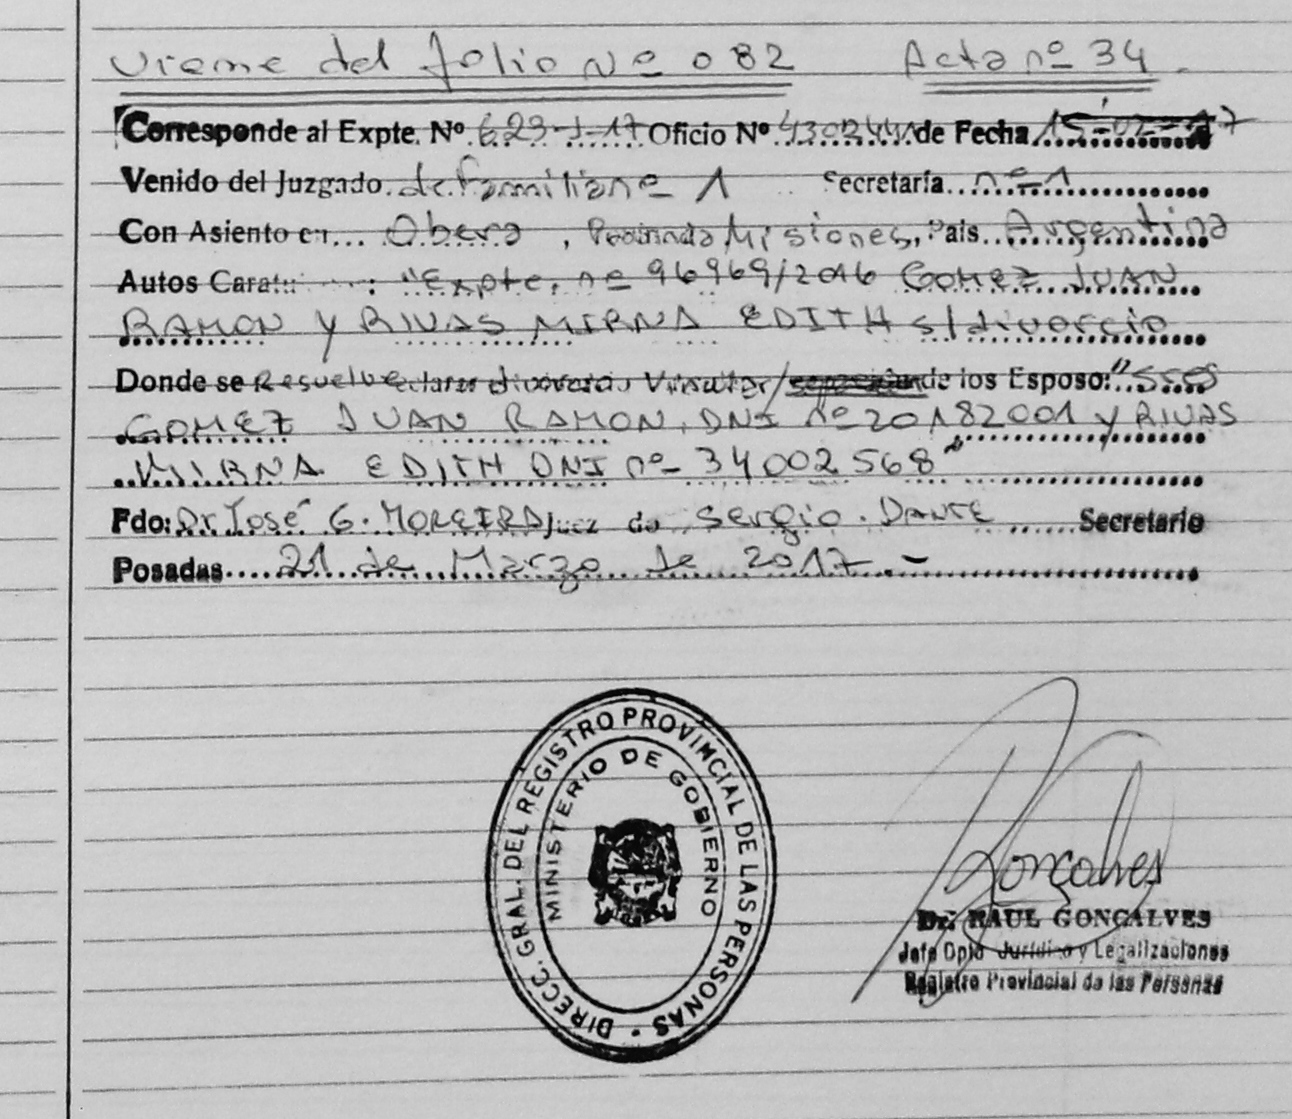 Viene del folio Nº 082 Acta nº 34
Corresponde al Expte. Nº 629-J-17 Oficio Nº de Fecha 15-02-17
Venido del Juzgado de familia nº 1 Secretaría nº 1
Con Asiento en Obera, Provincia Misiones, País Argentina
Autos Carat : "Expte. nº 96969/2016 GOMEZ JUAN
RAMON Y RIVAS MIRNA EDITH s/divorcio
Donde se Resuelve declarar divorcio Vincular/ de los Esposo: "SSES
GOMEZ JUAN RAMON, DNI nº 20182001 y RIVAS
MIRNA EDITH DNI nº 34002568"
Fdo: Dr. José G. MOREIRA Juez do Sergio. DANTE Secretario
Posadas 21 de Marzo de 2017.-
DIRECC. GRAL. DEL REGISTRO PROVINCIAL DE LAS PERSONAS
MINISTERIO DE GOBIERNO
Goncalves
Dr. RAUL GONCALVES
Jefe Dpto Jurídico y Legalizaciones
Registro Provincial de las Personas